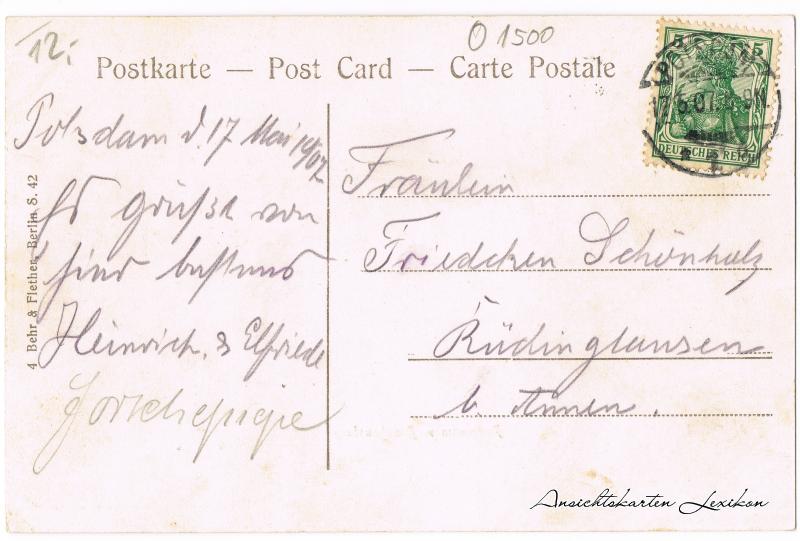 12.-
O 1500
Postkarte — Post Card — Carte Postale
5 5
DEUTSCHES REICH
Potsdam d. 17 Mai 1907
Es grüßt von
hier bestens
Heinrich & Elfriede
Fräulein
Friedchen Schönholz
Rüdinghausen
b. Annen.
4 Behr & Flether, Berlin, S. 42
Ansichtskarten Lexikon